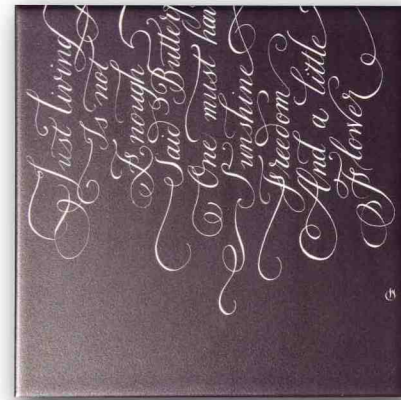 Just living
Is not
Enough
Said Butterf
One must hav
Sunshine
Freedom
And a little
Flower